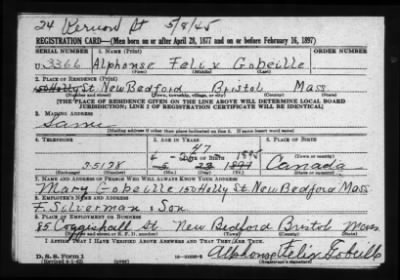 24 Vernon St 5/8/45
REGISTRATION CARD—(Men born on or after April 28, 1877 and on or before February 16, 1897)
SERIAL NUMBER 1. NAME (Print) ORDER NUMBER
U 3366 Alphonse Felix Gobeille
(First) (Middle) (Last)
2. PLACE OF RESIDENCE (Print)
150 Holly St New Bedford Bristol Mass
(Number and street) (Town, township, village, or city) (County) (State)
[THE PLACE OF RESIDENCE GIVEN ON THE LINE ABOVE WILL DETERMINE LOCAL BOARD
JURISDICTION; LINE 2 OF REGISTRATION CERTIFICATE WILL BE IDENTICAL]
3. MAILING ADDRESS
Same
[Mailing address if other than place indicated on line 2. If same insert word same]
4. TELEPHONE 5. AGE IN YEARS 6. PLACE OF BIRTH
47
DATE OF BIRTH 1895
(Town or county)
35198 23 Canada
(Exchange) (Number) (Mo.) (Day) (Yr.) (State or country)
7. NAME AND ADDRESS OF PERSON WHO WILL ALWAYS KNOW YOUR ADDRESS
Mary Gobeille 150 Holly St New Bedford Mass
8. EMPLOYER'S NAME AND ADDRESS
F. Silverman & Son
9. PLACE OF EMPLOYMENT OR BUSINESS
85 Coggeshall St New Bedford Bristol Mass
(Number and street or R. F. D. number) (Town) (County) (State)
I AFFIRM THAT I HAVE VERIFIED ABOVE ANSWERS AND THAT THEY ARE TRUE.
D. S. S. Form 1
(Revised 4-1-42) (over) Alphonse Felix Gobeille